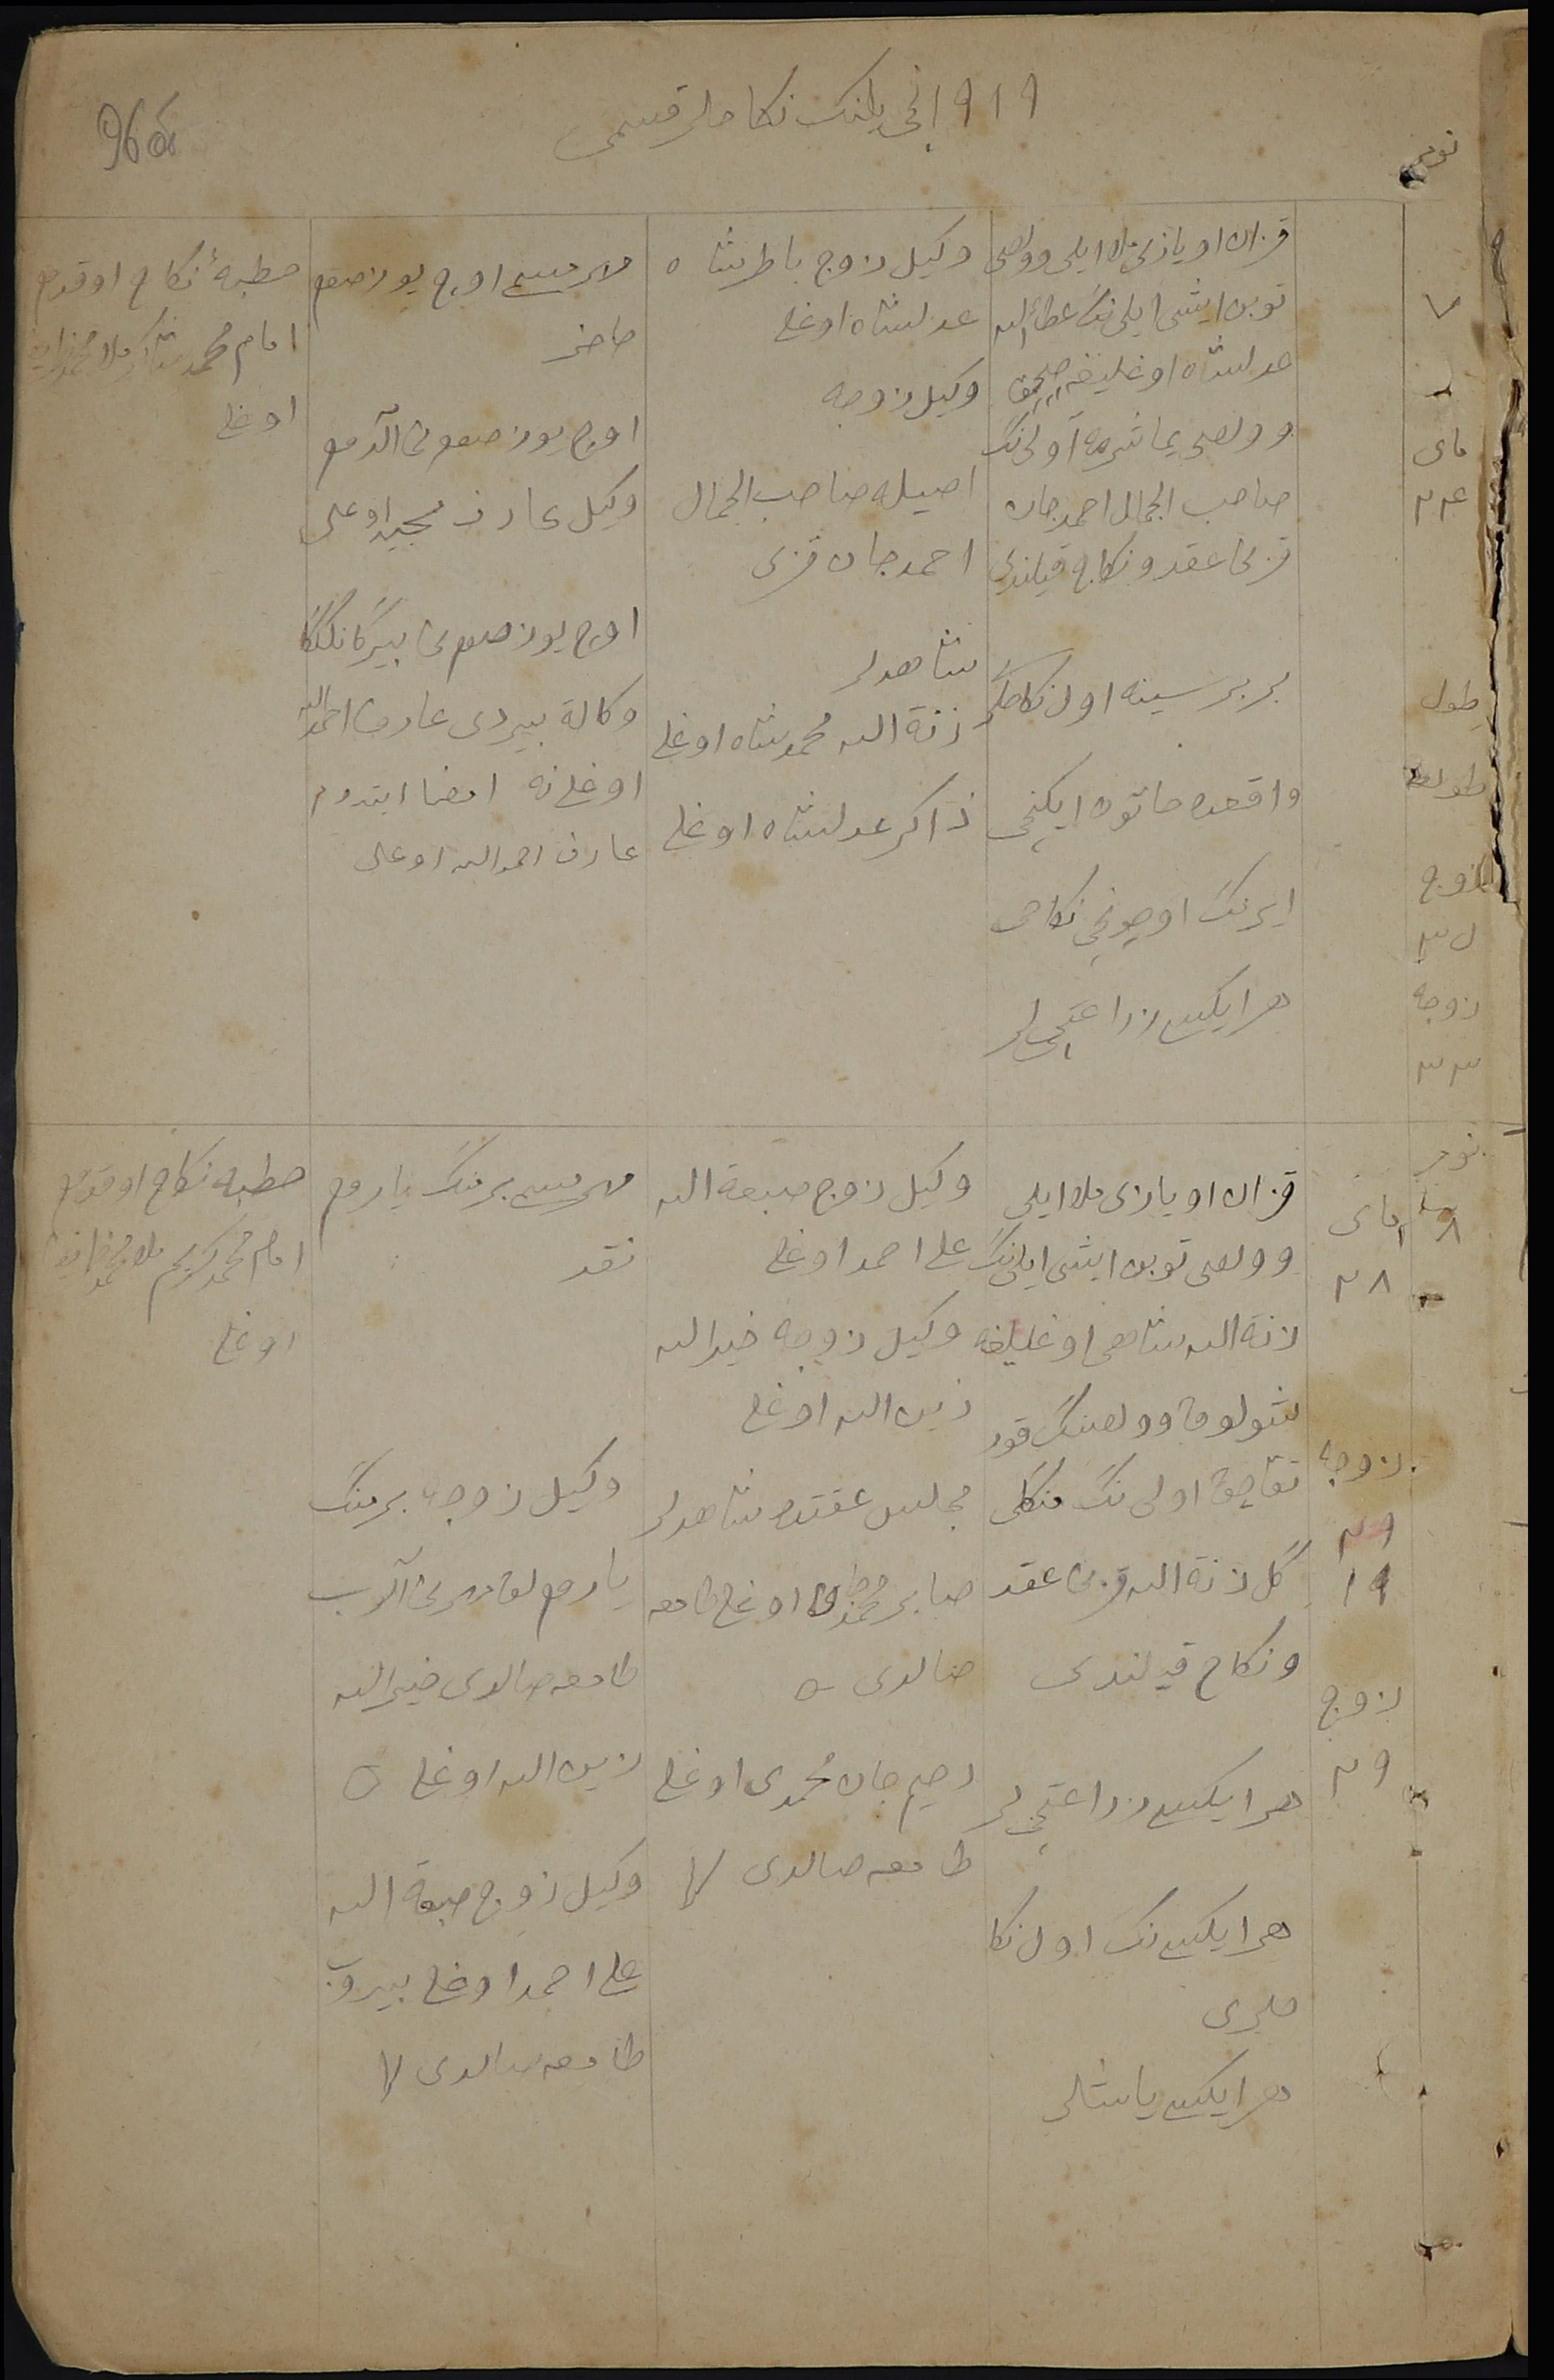 ١٩١٩ نچی یلنک نکاحلر قسمی
96
نومر
٧
مای
٢٤
طول
زوج
زوجه
٣٣
قزان اویازی ملا ایلی وولصی
توبن ایشی ایلی نڭ عطاءالله
عدلشاه اوغلیغه
وولصی یماشرمه آولی نڭ
صاحب الجمال احمدجان
قزی عقد و نکاح قیلندی
بربرسینه اول نکاحلر
واقعده خاتون ایکنچی
ایرنڭ اوچونچی نکاحی
هر ایکیسی زراعتچی لر
وکیل زوج باطرشاه
عدلشاه اوغلی
وکیل زوجه
اصیله صاحب الجمال
احمدجان قزی
شاهدلر
زنة الله محمدشاه اوغلی
ذاکر عدلشاه اوغلی
مهر مسمی اوچ یوز صوم
حاضر
اوچ یوز صومنی آلدم
وکیل عارف اوغلی
اوچ یوز صومنی بیرگانلگگا
وکالة بیردی عارف احمدالله
اوغلنه امضا ایتدم
عارف احمدالله اوغلی
خطبۀ نکاح اوقدم
امام محمدشاکر ملا
اوغلی
نومر
٨
مای
٢٨
زوجه
١٩
زوج
٢٩
قزان اویازی ملا ایلی
وولصی توبن ایشی ایلی نڭ
زنة الله شاهی اوغلیغه
شولوق وولصننڭ قور
آولی نڭ منگلی
گل زنة الله قزی عقد
و نکاح قیلندی
هر ایکیسی زراعتچی لر
هر ایکیسی نڭ اول نکا
حلری
هر ایکیسی یاشلر
وکیل زوج صبغة الله
علی احمد اوغلی
وکیل زوجه خیرالله
زین الله اوغلی
مجلس عقدده شاهدلر
صابر اوغلی طامغه
صالدی
رحیم جان محمدی اوغلی
طامغه صالدی
مهر مسمی بر منڭ یارم
نقد
وکیل زوجه بر منڭ
یارم لق مهرنی آلوب
طامغه صالدی خیرالله
زین الله اوغلی
وکیل زوج صبغة الله
علی احمد اوغلی بیروب
طامغه صالدی
خطبه نکاح اوقدم
امام محمدکریم ملا
اوغلی